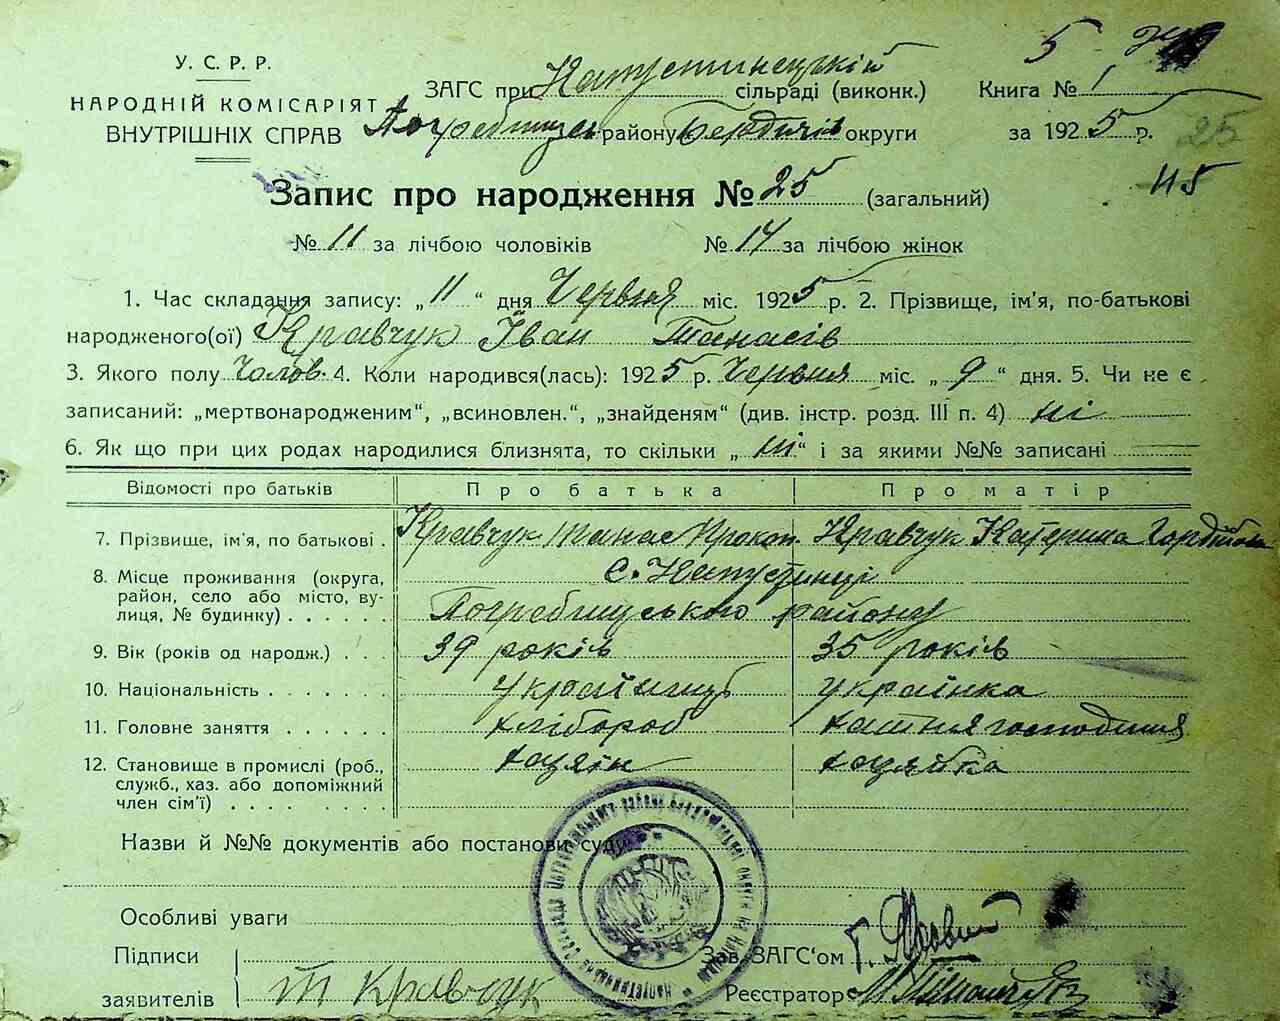 5
У.С.Р.Р.
НАРОДНІЙ КОМІСАРІЯТ
ВНУТРІШНІХ СПРАВ
ЗАГС при Капустинецькій сільраді (виконк.)
Книга № 1
Погребищен району Бердичів округи
за 1925 р.
25
115
Запис про народження № 25 (загальний)
№ 11 за лічбою чоловіків № 14 за лічбою жінок
1. Час складання запису: „11“ дня Червня міс. 1925 р. 2. Прізвище, ім'я, по-батькові
народженого(ої) Кравчук Іван Танасів
3. Якого полу Чолов. 4. Коли народився(лась): 1925 р. Червня міс. „9“ дня. 5. Чи не є
записаний: „мертвонародженим“, „всиновлен.“, „знайденям“ (див. інстр. розд. III п. 4) ні
6. Як що при цих родах народилися близнята, то скільки „ні“ і за якими №№ записані
Відомості про батьків Про батька Про матір
7. Прізвище, ім'я, по батькові . Кравчук Танас Прокоп. Кравчук Катерина Гордіївна
8. Місце проживання (округа, с. Капустинці
район, село або місто, ву-
лиця, № будинку) . . . . . . Погребищського району
9. Вік (років од народж.) . . . 39 років 35 років
10. Національність . . . . . . . українець українка
11. Головне заняття . . . . . . хлібороб хатня господиня
12. Становище в промислі (роб., хазяїн хазяйка
служб., хаз. або допоміжний
член сім'ї) . . . . . . . .
Назви й №№ документів або постанови суду
Особливі уваги
Підписи
заявителів Т Кравчук
Зав. ЗАГС'ом Г.
Реєстратор